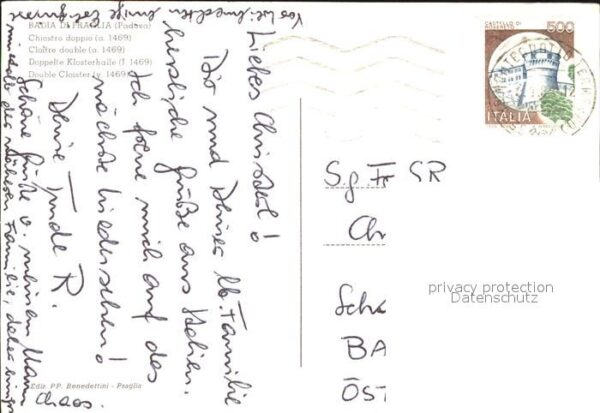 BADIA DI PRAGLIA (Padova)
Chiostro doppio (a. 1469)
Cloître double (a. 1469)
Doppelte Klosterhalle (J. 1469)
Double Cloister (y. 1469)
Liebes Christerl!
Dir und Deiner lb. Familie
herzliche Grüße aus Italien.
Ich freue mich auf das
nächste Wiedersehen!
Deine Trude R.
Schöne Grüße v. meinem Mann
Familie,
Chaos.
Ediz. PP. Benedettini - Praglia
CASTELLO DI ROVERETO
500
ITALIA
S.g. Fr SR
Ch
Scha
BA
ÖST
privacy protection
Datenschutz